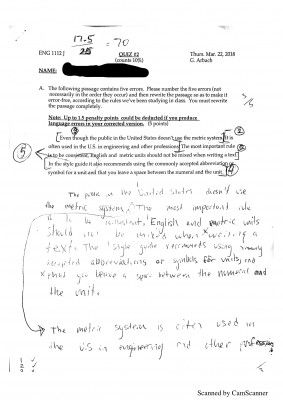 17.5 = 70
25
ENG 1112 J QUIZ #2 Thurs. Mar. 22, 2018
(counts 10%) G. Arbach
NAME:
A. The following passage contains five errors. Please number the five errors (not
necessarily in the order they occur) and then rewrite the passage so as to make it
error-free, according to the rules we've been studying in class. You must rewrite
the passage completely. (5 points)
Note: Up to 1.5 penalty points could be deducted if you produce
language errors in your corrected version.
Even though the public in the United States doesn't use the metric system. It is
often used in the U.S. in engineering and other professions. The most important rule
is to be consistent, English and metric units should not be mixed when writing a text.
In the style guide it also recommends using the commonly accepted abbreviation or
symbol for a unit and that you leave a space between the numeral and the unit.
The public in the United States doesn't use
the metric system. The most important rule
is to be consistent, English and metric units
should not be mixed when writing a
text. The style guide recommends using commonly
accepted abbreviations or symbols for units and
that you leave a space between the numeral and
the unit.
The metric system is often used in
the U.S in engineering and other professions.
Scanned by CamScanner